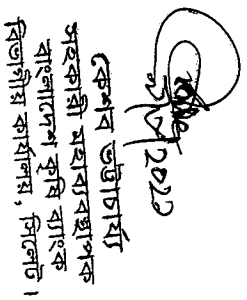 ২০২১
কেশব ভট্টাচার্য্য
সহকারী মহাব্যবস্থাপক
বাংলাদেশ কৃষি ব্যাংক
বিভাগীয় কার্যালয়, সিলেট।